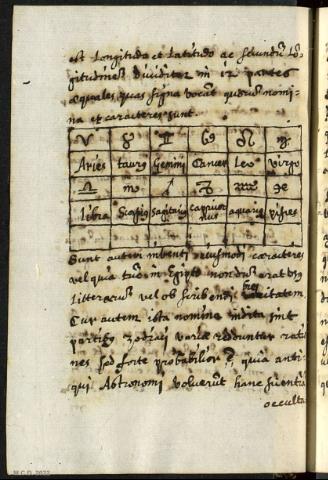 est Longitudo et Latitudo ac secundū Lō-
gitudinē dividitur in 12 partes
æquales, quas signa vocāt quorū nomi-
na et caracteres sunt
♈ ♉ ♊ ♋ ♌ ♍
Aries taurus Gemini Cancer Leo Virgo
♎ ♏ ♐ ♑ ♒ ♓
libra Scorpius Sagitarius capricor-
nus aquarius pisces
Sunt autem inventi eiusmodi caracteres
vel quia tūc in Egipto non erat usus
litterarū vel ob scribendi brevitatem
Cur autem ista nomina indita sint
partibus zodiaci variæ redduntur ratio-
nes sed forte probabilior quia anti-
qui Astronomi voluerūt hanc
occulta